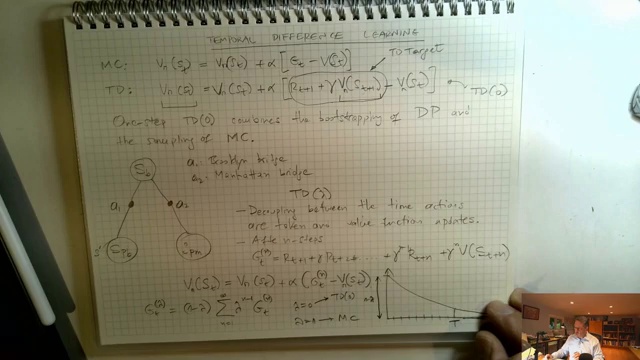 TEMPORAL DIFFERENCE LEARNING
TD Target
MC: Vπ(St) = Vπ(St) + α [Gt − V(St)]
TD: Vπ(St) = Vπ(St) + α [Rt+1 + γ Vπ(St+1) − Vπ(St)] TD(0)
One-step TD(0) combines the bootstrapping of DP and
the sampling of MC.
a1: Brooklyn bridge
a2: Manhattan bridge
a1 a2
TD(λ)
- Decoupling between the time actions
are taken and value function updates.
- After n-steps
Gt(n) = Rt+1 + γRt+2 + ... + γ Rt+n + γⁿ V(St+n)
Vπ(St) = Vπ(St) + α (Gt(n) − Vπ(St))
Gt(λ) = (1-λ) Σ λⁿ⁻¹ Gt(n)
n=1
λ=0 → TD(0)
→ MC
1-λ
T